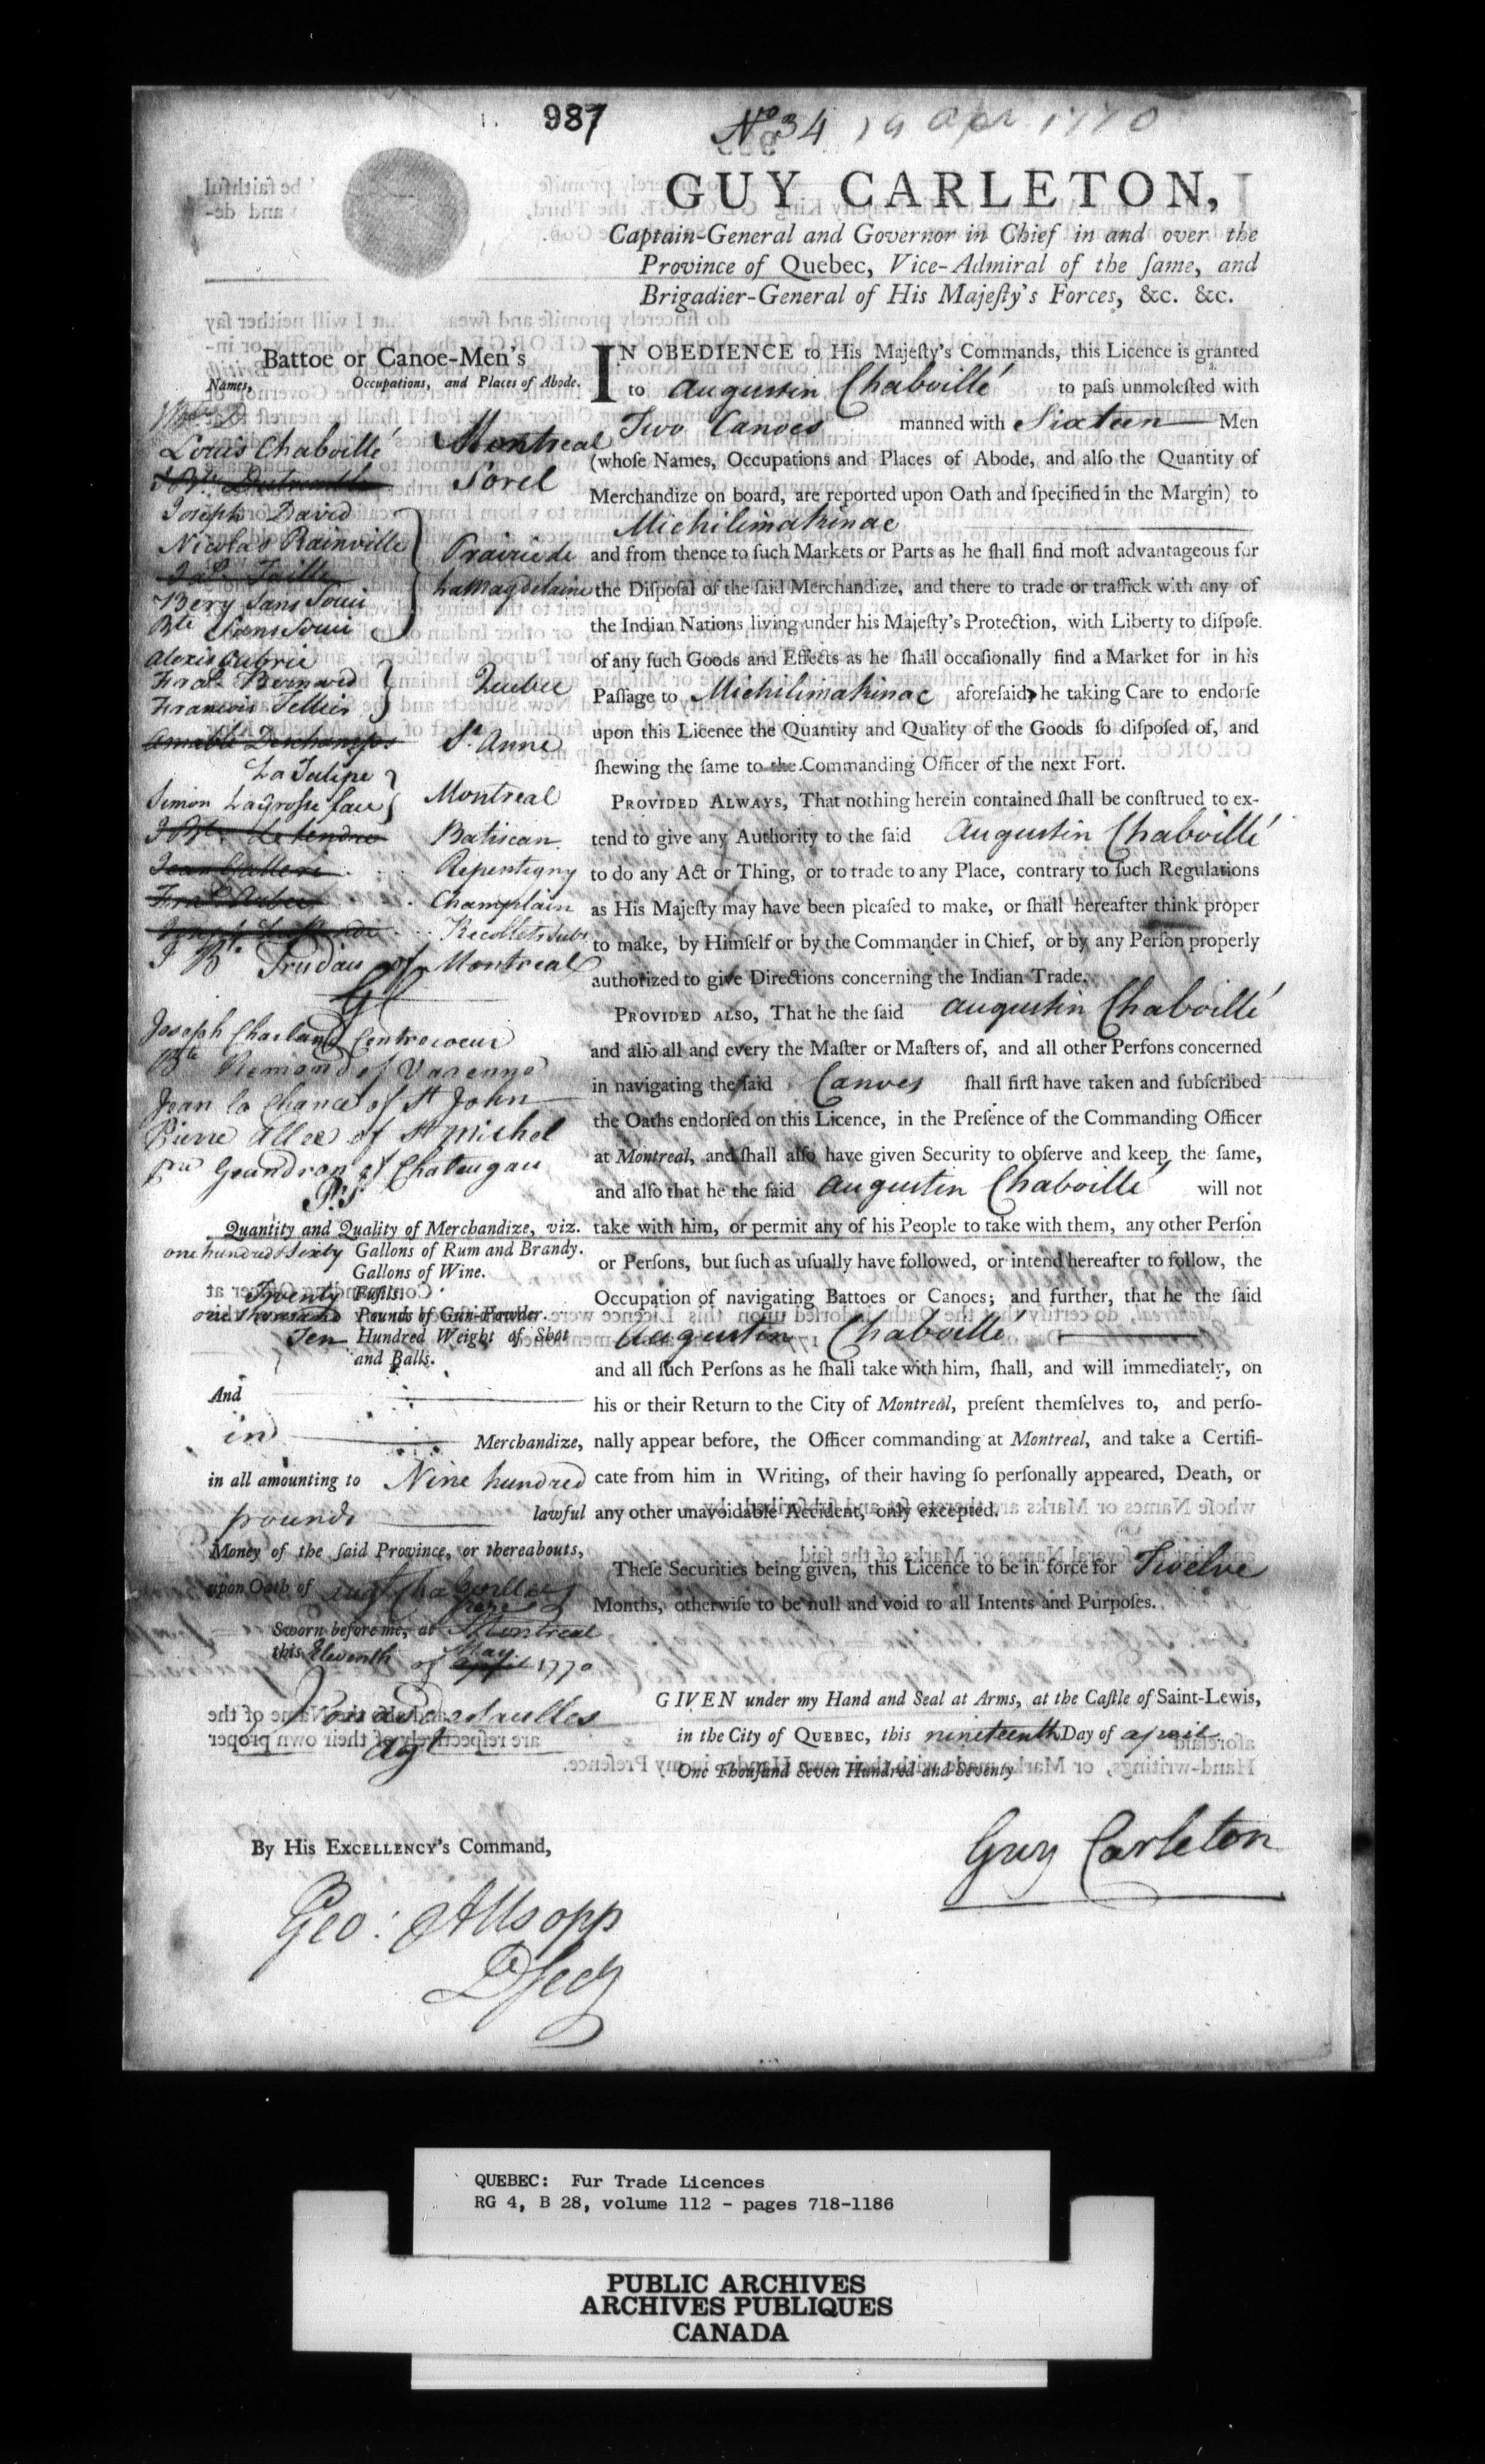 987
No 34 19 Apr 1770
GUY CARLETON,
Captain-General and Governor in Chief in and over the
Province of Quebec, Vice-Admiral of the ſame, and
Brigadier-General of His Majeſty's Forces, &c. &c.
Battoe or Canoe-Men's
Names, Occupations, and Places of Abode.
Louis Chaboillé Montreal
Sorel
Joseph David
Nicolas Rainville Prairie de
LaMagdelaine
Bery Sans Souci
Bte Sans Souci
Alexis Aubrie
Fras. Bernard Quebec
Francois Tellier
Amable Deschamps St. Anne
La Tulipe
Simon LaGrosse face Montreal
J Bte. Letendre Batiscan
Repentigny
Champlain
Recollets Subs
J B. Trudau of Montreal
GC
Joseph Charland Contrecoeur
Bte Remond of Varenne
Jean la Chance of St John
Pierre Allee of St Michel
pre Geandron of Chateugau
Quantity and Quality of Merchandize, viz.
one hundred & Sixty Gallons of Rum and Brandy.
Gallons of Wine.
Twenty Fuſils.
one thousand Pounds of Gun-Powder.
Ten Hundred Weight of Shot
and Balls.
And
in Merchandize,
in all amounting to Nine hundred
pounds lawful
Money of the ſaid Province, or thereabouts,
upon Oath of Augt Chaboillez
Sworn before me, at Montreal
this Eleventh of April May 1770
Agt
IN OBEDIENCE to His Majeſty's Commands, this Licence is granted
to Augustin Chaboillé to paſs unmoleſted with
Two Canoes manned with Sixteen Men
(whoſe Names, Occupations and Places of Abode, and alſo the Quantity of
Merchandize on board, are reported upon Oath and ſpecified in the Margin) to
Michilimakinac
and from thence to ſuch Markets or Parts as he ſhall find moſt advantageous for
the Diſpoſal of the ſaid Merchandize, and there to trade or traffick with any of
the Indian Nations living under his Majeſty's Protection, with Liberty to diſpoſe
of any ſuch Goods and Effects as he ſhall occaſionally find a Market for in his
Paſſage to Michilimakinac aforeſaid, he taking Care to endorſe
upon this Licence the Quantity and Quality of the Goods ſo diſpoſed of, and
ſhewing the ſame to the Commanding Officer of the next Fort.
PROVIDED ALWAYS, That nothing herein contained ſhall be conſtrued to ex-
tend to give any Authority to the ſaid Augustin Chaboillé
to do any Act or Thing, or to trade to any Place, contrary to ſuch Regulations
as His Majeſty may have been pleaſed to make, or ſhall hereafter think proper
to make, by Himſelf or by the Commander in Chief, or by any Perſon properly
authorized to give Directions concerning the Indian Trade.
PROVIDED ALSO, That he the ſaid Augustin Chaboillé
and alſo all and every the Maſter or Maſters of, and all other Perſons concerned
in navigating the ſaid Canoes ſhall firſt have taken and ſubſcribed
the Oaths endorſed on this Licence, in the Preſence of the Commanding Officer
at Montreal, and ſhall alſo have given Security to obſerve and keep the ſame,
and alſo that he the ſaid Augustin Chaboillé will not
take with him, or permit any of his People to take with them, any other Perſon
or Perſons, but ſuch as uſually have followed, or intend hereafter to follow, the
Occupation of navigating Battoes or Canoes; and further, that he the ſaid
Augustin Chaboillé
and all ſuch Perſons as he ſhall take with him, ſhall, and will immediately, on
his or their Return to the City of Montreal, preſent themſelves to, and perſo-
nally appear before, the Officer commanding at Montreal, and take a Certifi-
cate from him in Writing, of their having ſo perſonally appeared, Death, or
any other unavoidable Accident, only excepted.
Theſe Securities being given, this Licence to be in force for Twelve
Months, otherwiſe to be null and void to all Intents and Purpoſes.
GIVEN under my Hand and Seal at Arms, at the Caſtle of Saint-Lewis,
in the City of QUEBEC, this nineteenth Day of april
One Thouſand Seven Hundred and Seventy
Guy Carleton
By His EXCELLENCY's Command,
Geo: Allsopp
D Secy
QUEBEC: Fur Trade Licences
RG 4, B 28, volume 112 - pages 718-1186
PUBLIC ARCHIVES
ARCHIVES PUBLIQUES
CANADA